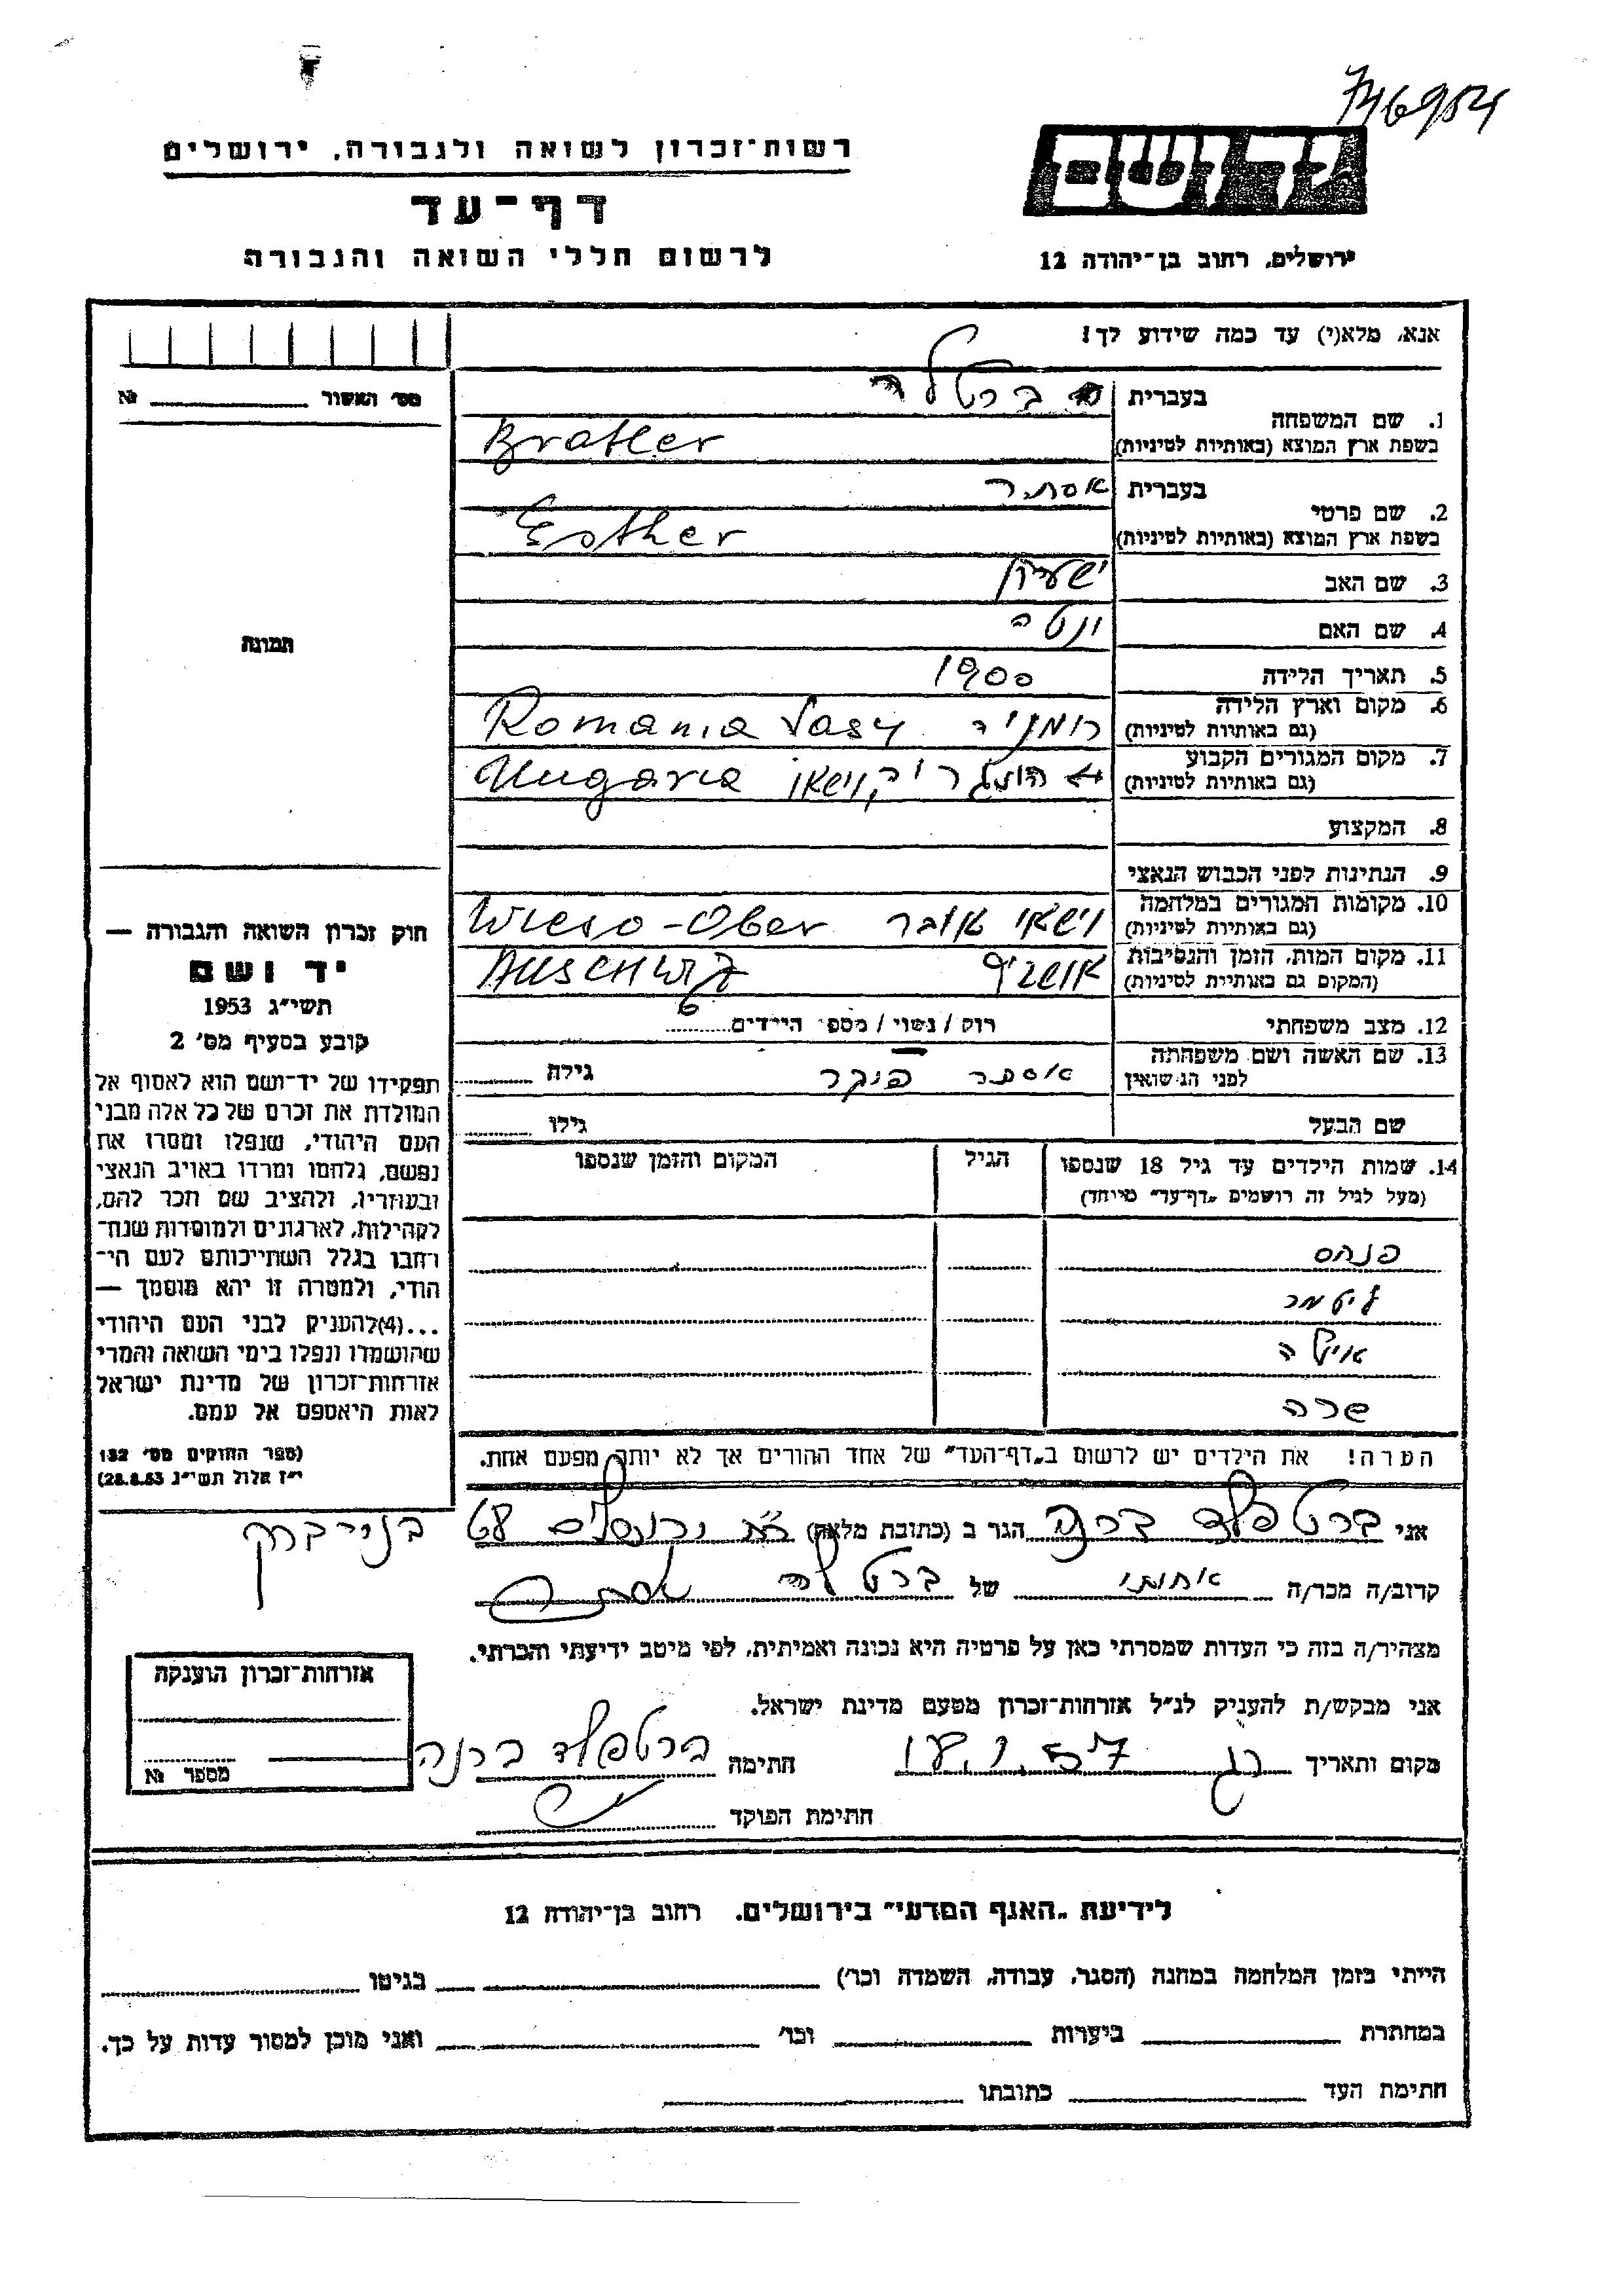 רשות־זכרון לשואה ולגבורה, ירושלים
דף־עד
לרשום חללי השואה והגבורה
ידושם
ירושלים, רחוב בן־יהודה 12
אנא, מלא(י) עד כמה שידוע לך!
מס׳ האשור № 
תמונה
חוק זכרון השואה והגבורה —
יד ושם
תשי״ג 1953
קובע בסעיף מס׳ 2
תפקידו של יד־ושם הוא לאסוף אל
המולדת את זכרם של כל אלה מבני
העם היהודי, שנפלו ומסרו את
נפשם, נלחמו ומרדו באויב הנאצי
ובעוזריו, ולהציב שם וזכר להם,
לקהילות, לארגונים ולמוסדות שנח־
רחבו בגלל השתייכותם לעם הי־
הודי, ולמטרה זו יהא מוסמך —
...(4)להעניק לבני העם היהודי
שהושמדו ונפלו בימי השואה והמרי
אזרחות־זכרון של מדינת ישראל
לאות היאספם אל עמם.
(ספר החוקים מס׳ 132
י״ז אלול תשי״ג 28.8.53)
1. שם המשפחה בעברית ברטלר
בשפת ארץ המוצא (באותיות לטיניות) Bratler
2. שם פרטי בעברית אסתר
בשפת ארץ המוצא (באותיות לטיניות) Esther
3. שם האב
4. שם האם
5. תאריך הלידה 1900
6. מקום וארץ הלידה (גם באותיות לטיניות) רומניה Romania Jasy
7. מקום המגורים הקבוע (גם באותיות לטיניות) Hungaria
8. המקצוע
9. הנתינות לפני הכבוש הנאצי
10. מקומות המגורים במלחמה (גם באותיות לטיניות) וישאו אובר Wieso-Ober
11. מקום המות, הזמן והנסיבות (המקום גם באותיות לטיניות) אושביץ
12. מצב משפחתי רוק / נשוי / מספר הילדים 6
13. שם האשה ושם משפחתה לפני הנשואין אסתר פיקר גילה
שם הבעל גילו
14. שמות הילדים עד גיל 18 שנספו הגיל המקום והזמן שנספו
(מעל לגיל זה רושמים „דף־עד״ מיוחד)
פנחס
שרה
הערה! את הילדים יש לרשום ב„דף־העד״ של אחד ההורים אך לא יותר מפעם אחת.
אני ברטפלד ברנה הגר ב (כתובת מלאה) ירושלים 68 בני־ברק
קרוב/ה מכר/ה אחותי של ברטלר אסתר
מצהיר/ה בזה כי העדות שמסרתי כאן על פרטיה היא נכונה ואמיתית, לפי מיטב ידיעתי והכרתי.
אני מבקש/ת להעניק לנ״ל אזרחות־זכרון מטעם מדינת ישראל.
מקום ותאריך רג 18.1.57 חתימה ברטפלד ברנה
חתימת הפוקד
אזרחות־זכרון הוענקה
מספר №
לידיעת „האגף המדעי״ בירושלים, רחוב בן־יהודה 12
הייתי בזמן המלחמה במחנה (הסגר, עבודה, השמדה וכו׳) בגיטו
במחתרת ביערות וכו׳ ואני מוכן למסור עדות על כך.
חתימת העד כתובתו